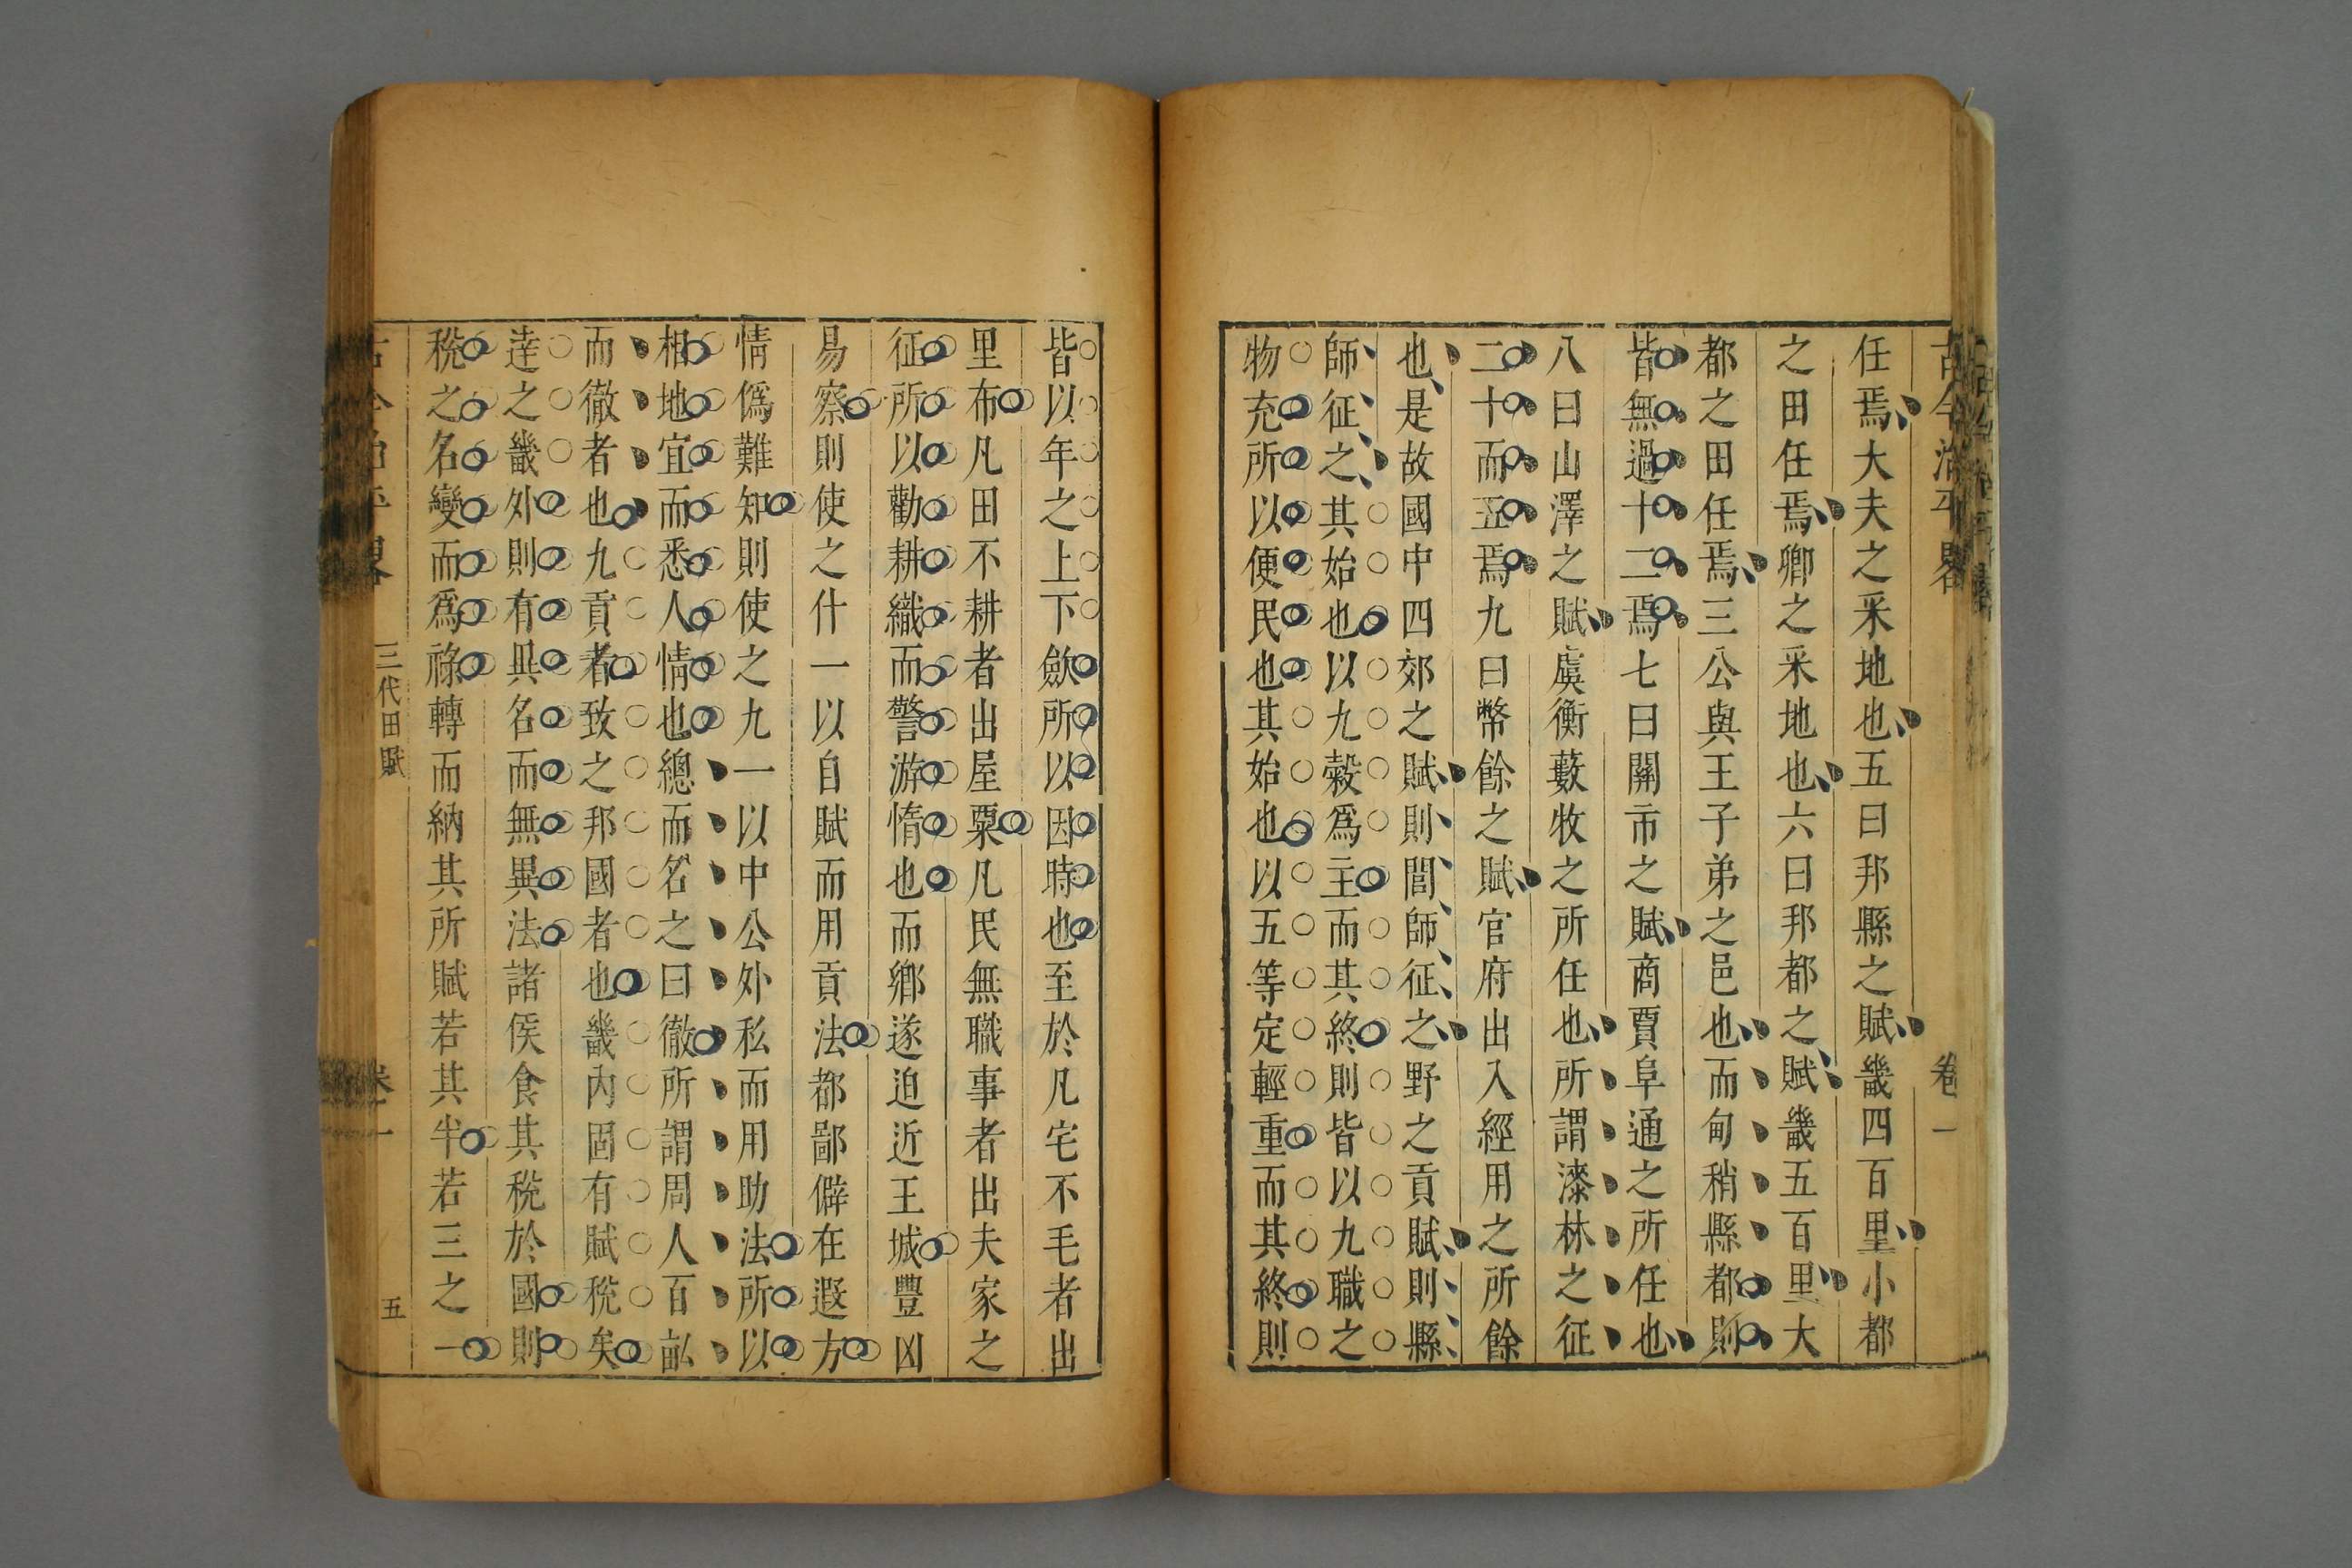 古今治平畧 卷一
任焉大夫之采地也五曰邦縣之賦畿四百里小都
之田任焉卿之采地也六曰邦都之賦畿五百里大
都之田任焉三公與王子弟之邑也而甸稍縣都則
皆無過十二焉七曰關市之賦商賈阜通之所任也
八曰山澤之賦虞衡藪牧之所任也所謂漆林之征
二十而五焉九曰幣餘之賦官府出入經用之所餘
也是故國中四郊之賦則閭師征之野之貢賦則縣
師征之其始也以九穀爲主而其終則皆以九職之
物充所以便民也其始也以五等定輕重而其終則
皆以年之上下歛所以因時也至於凡宅不毛者出
里布凡田不耕者出屋粟凡民無職事者出夫家之
征所以勸耕織而警游惰也而鄉遂迫近王城豐凶
易察則使之什一以自賦而用貢法都鄙僻在遐方
情僞難知則使之九一以中公外私而用助法所以
相地宜而悉人情也總而名之曰徹所謂周人百畝
而徹者也九貢者致之邦國者也畿內固有賦稅矣
逹之畿外則有異名而無異法諸侯食其稅於國則
稅之名變而爲祿轉而納其所賦若其半若三之一
古今治平畧 三代田賦 卷一 五